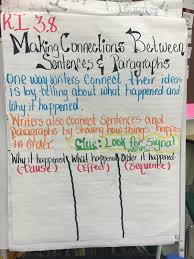 RI 3.8
Making Connections Between
Sentences & Paragraphs
One way writers connect their ideas
is by telling about what happened and
why it happened.
Writers also connect Sentences and
Paragraphs by showing how things happen
in order. Clue: Look for Signal
words.
Why it happened What happened Order it happened
(Cause) (Effect) (Sequence)